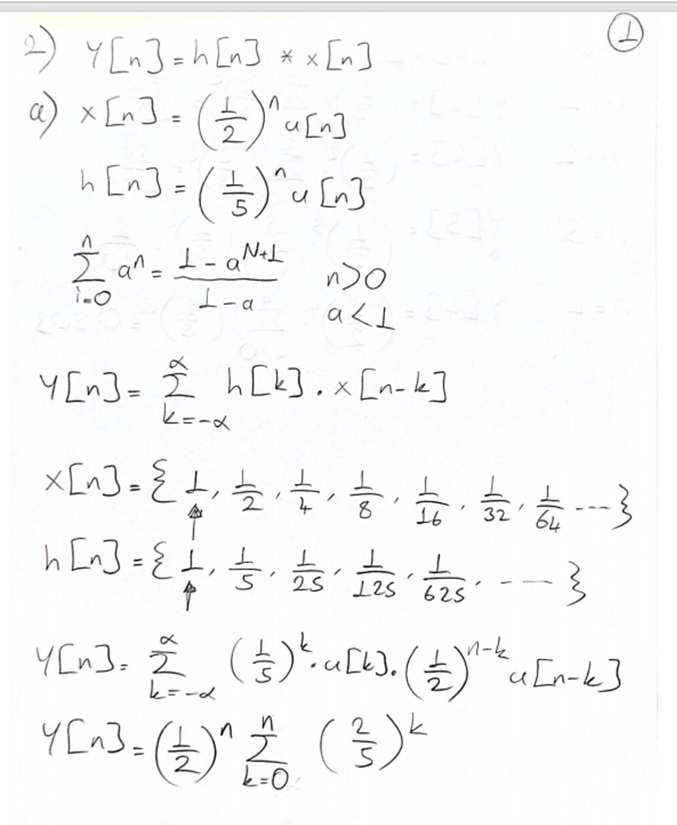 1
2) Y[n] = h[n] * x[n]
a) x[n] = (1/2)^n u[n]
h[n] = (1/5)^n u[n]
∑_{i=0}^{n} a^n = (1 - a^{N+1}) / (1 - a)   n>0
a<1
Y[n] = ∑_{k=-∝}^{∝} h[k] . x[n-k]
x[n] = { 1, 1/2, 1/4, 1/8, 1/16, 1/32, 1/64 --- }
↑
h[n] = { 1, 1/5, 1/25, 1/125, 1/625, - --- }
↑
Y[n] = ∑_{k=-∝}^{∝} (1/5)^k . u[k] . (1/2)^{n-k} u[n-k]
Y[n] = (1/2)^n ∑_{k=0}^{n} (2/5)^k